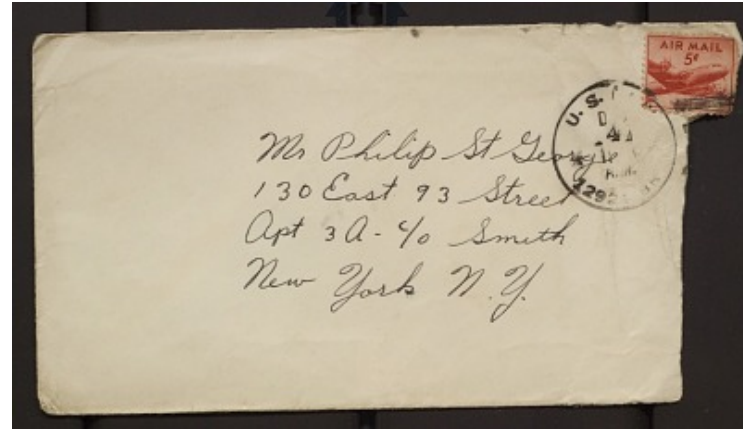 AIR MAIL
5¢
U. S.
Mr Philip St George
130 East 93 Street
Apt 3A - c/o Smith
New York N. Y.